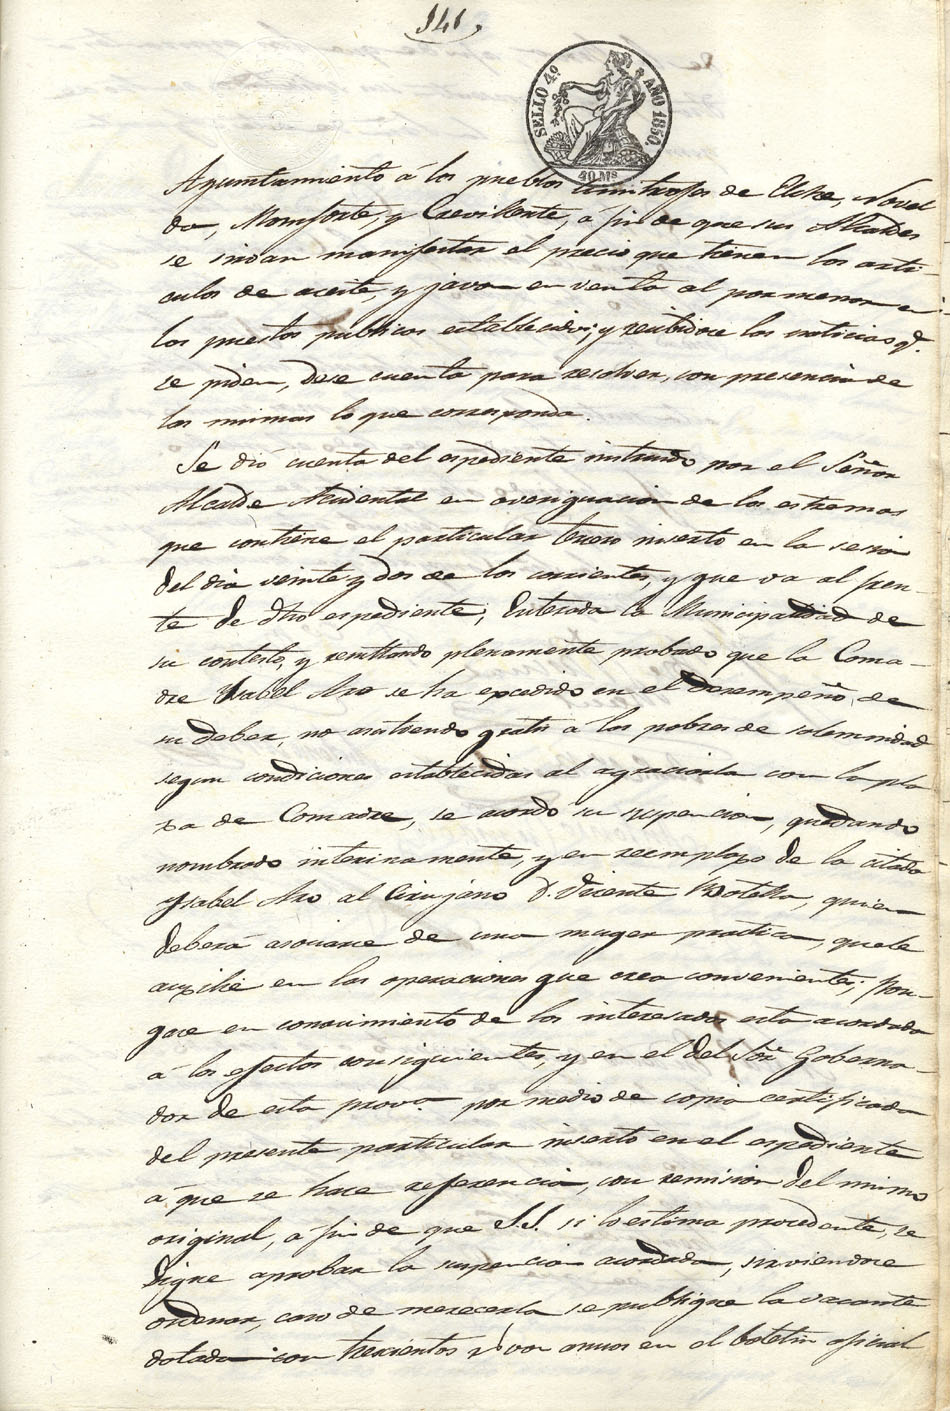 141,
SELLO 4º AÑO 1850.
40 Ms
Ayuntamiento á los pueblos limitrofes de Elche, Novel
da, Monforte, y Crevillente, a fin de que sus Alcaldes
se sirvan manifestar el precio que tienen los arti-
culos de aceite, y javon en venta al por menor en
los puestos publicos establecidos; y recibidose las noticias q.e
se piden, dese cuenta para resolver, con presencia de
las mismas lo que corresponda.
Se dió cuenta del espediente instruido por el Señor
Alcalde Acidental en averiguacion de los estremos
que contiene el particular tercero inserto en la sesion
del dia veinte y dos de los corrientes, y que va al fren-
te de dho espediente; Enterada la Municipalidad de
su contesto, y resultando plenamente probado que la Coma-
dre Ysabel Aro se ha excedido en el desempeño de
su deber, no asistiendo gratis á los pobres de solemnidad
segun condiciones establecidas al agraciarla con la pla
za de Comadre, se acordó su suspencion, quedando
nombrado interinamente, y en reemplazo de la citada
Ysabel Aro al Cirujano D. Vicente Botella, quien
deberá asociarse de una muger practica, que le
auxilie en las operaciones que crea convenientes; pon-
gase en conocimiento de los interesados esta acordada
á los efectos consiguientes, y en el del Sor. Goberna-
dor de esta prova. por medio de copia certificada
del presente particular inserto en el espediente
á que se hace referencia, con remision del mismo
original, a fin de que S.S. si lo estima procedente, se
digne aprobar la suspencion acordada, sirviendose
ordenar, caso de merecerla se publique la vacante
dotada con trescientos rs von anuos en el boletin oficial